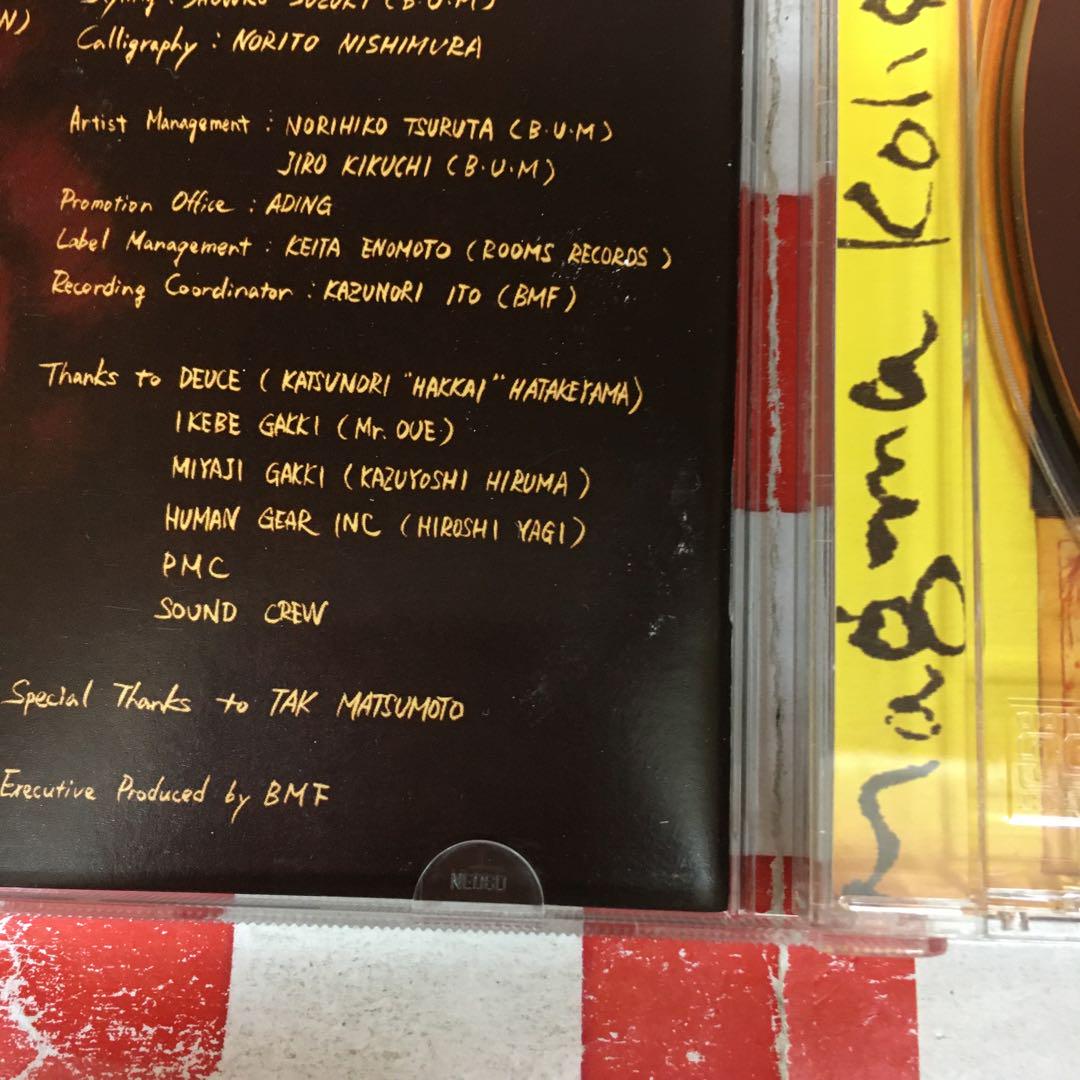 N)
Calligraphy : NORITO NISHIMURA
Artist Management : NORIHIKO TSURUTA (B・U・M)
JIRO KIKUCHI (B・U・M)
Promotion Office : ADING
Label Management : KEITA ENOMOTO (ROOMS RECORDS)
Recording Coordinator : KAZUNORI ITO (BMF)
Thanks to DEUCE (KATSUNORI "HAKKAI" HATAKEYAMA)
IKEBE GAKKI (Mr. OUE)
MIYAJI GAKKI (KAZUYOSHI HIRUMA)
HUMAN GEAR INC (HIROSHI YAGI)
PMC
SOUND CREW
Special Thanks to TAK MATSUMOTO
Executive Produced by BMF